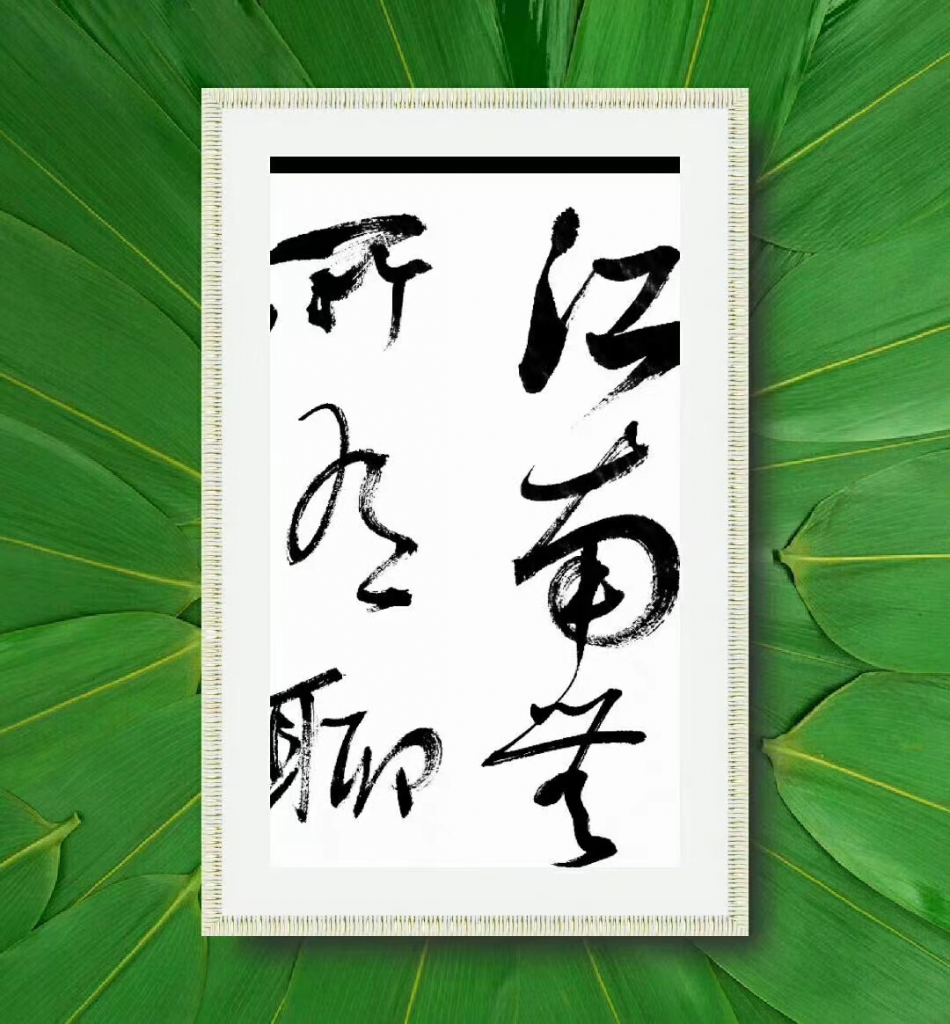 江南無
所有聊